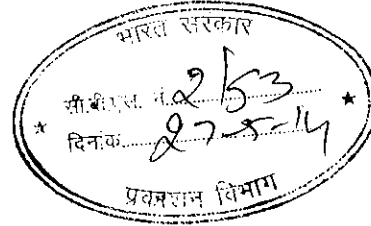 भारत सरकार
सी.बी.एस. नं. 253
दिनांक 27-5-14
प्रकाशन विभाग